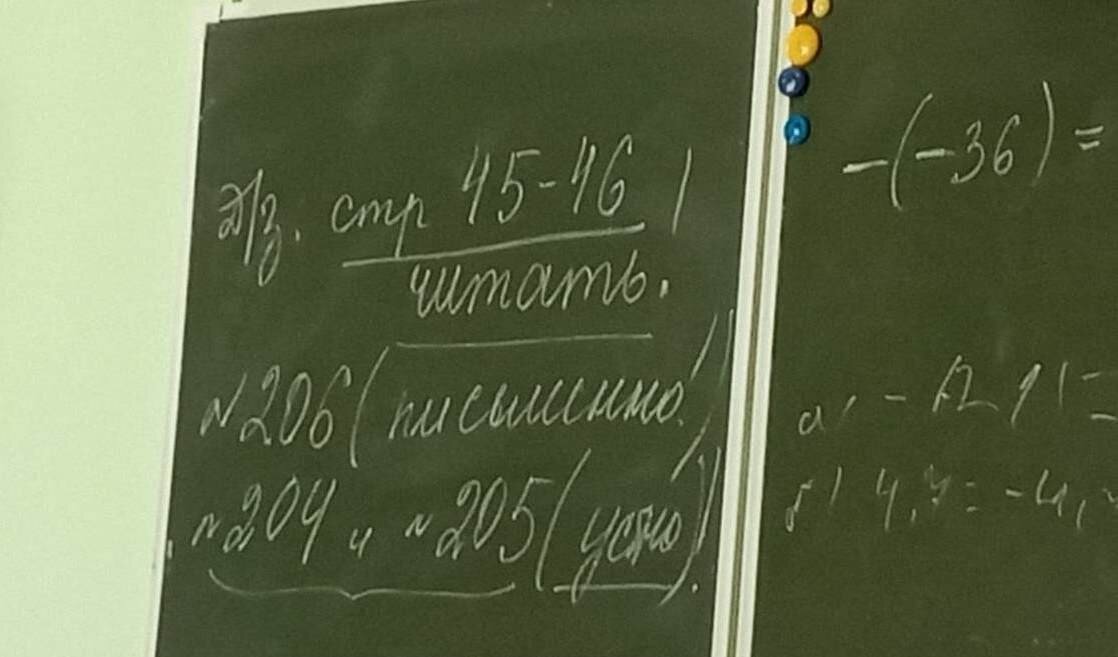 Д/з. стр 45-46
читать.
№206 (письменно!)
№204 и №205 (устно!).
-(-36)=